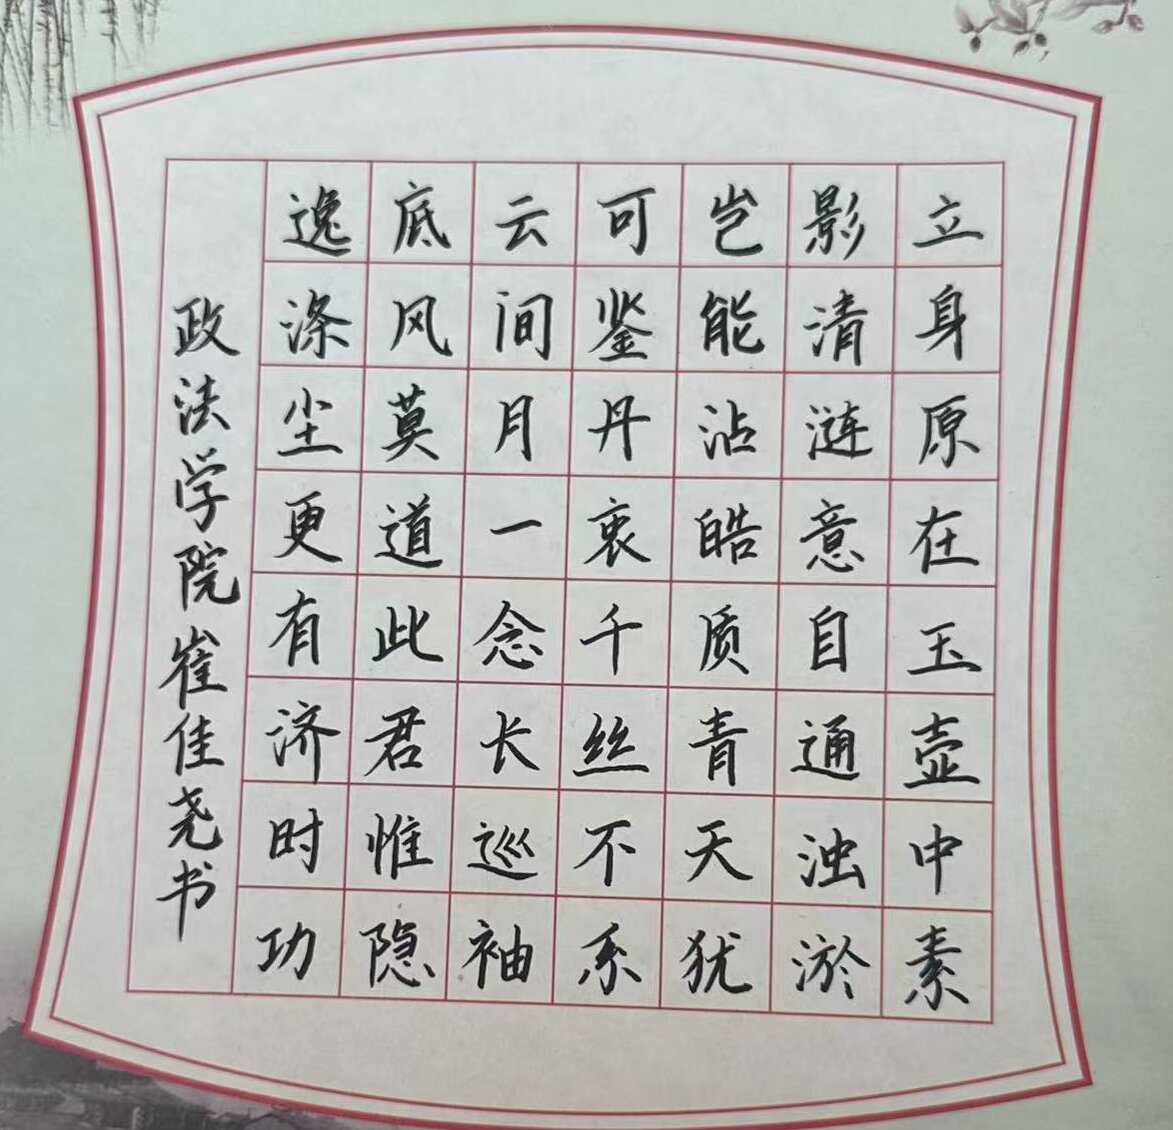 立身原在玉壶中素
影清涟意自通浊淤
岂能沾皓质青天犹
可鉴丹衷千丝不系
云间月一念长巡袖
底风莫道此君惟隐
逸涤尘更有济时功
政法学院崔佳尧书